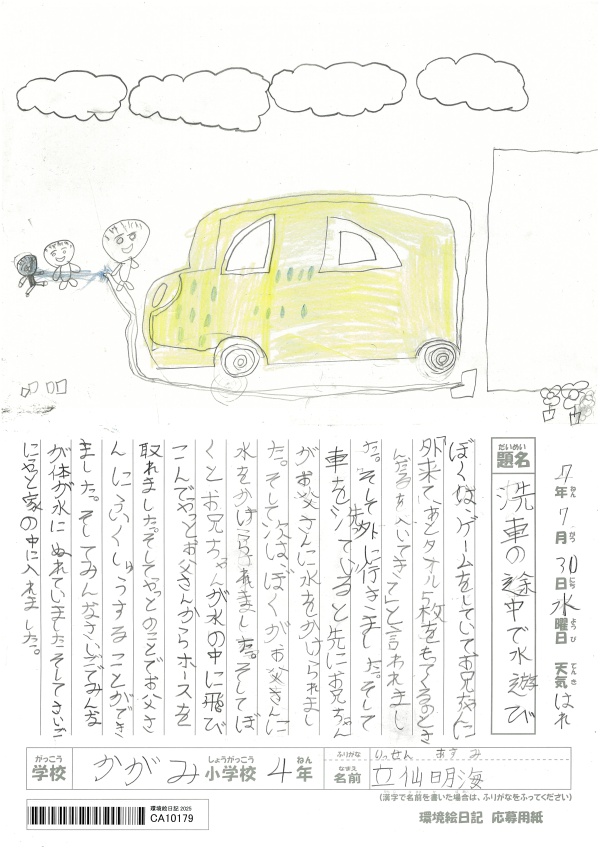 7年 7月 30日 水曜日 天気 はれ
ねん がつ にち ようび てんき
だいめい
題名 洗車の途中で水遊び
ぼくは、ゲームをしていてお兄ちゃんに
「外来て、あとタオル5枚をもてくるのとき
んだるを入いてきて」と言われまし
た。そして外に行きました。そして
車を洗っていると先にお兄ちゃん
がお父さんに水をかけられまし
た。そして次はぼくがお父さんに
水をかけられました。そしてぼ
くとお兄ちゃんが水の中に飛び
こんでやっとお父さんからホースを
取れました。そしてやっとのことでお父さ
んにふくしゅうすることができ
ました。そしてみんなさいごでみんな
が体が水にぬれていましたそしてさいご
にやっと家の中に入れました。
がっこう しょうがっこう ねん
学校 かがみ 小学校 4年
ふりがな りっせん あすみ
なまえ
名前 立仙明海
(漢字で名前を書いた場合は、ふりがなをふってください)
環境絵日記 2025
CA10179
環境絵日記 応募用紙